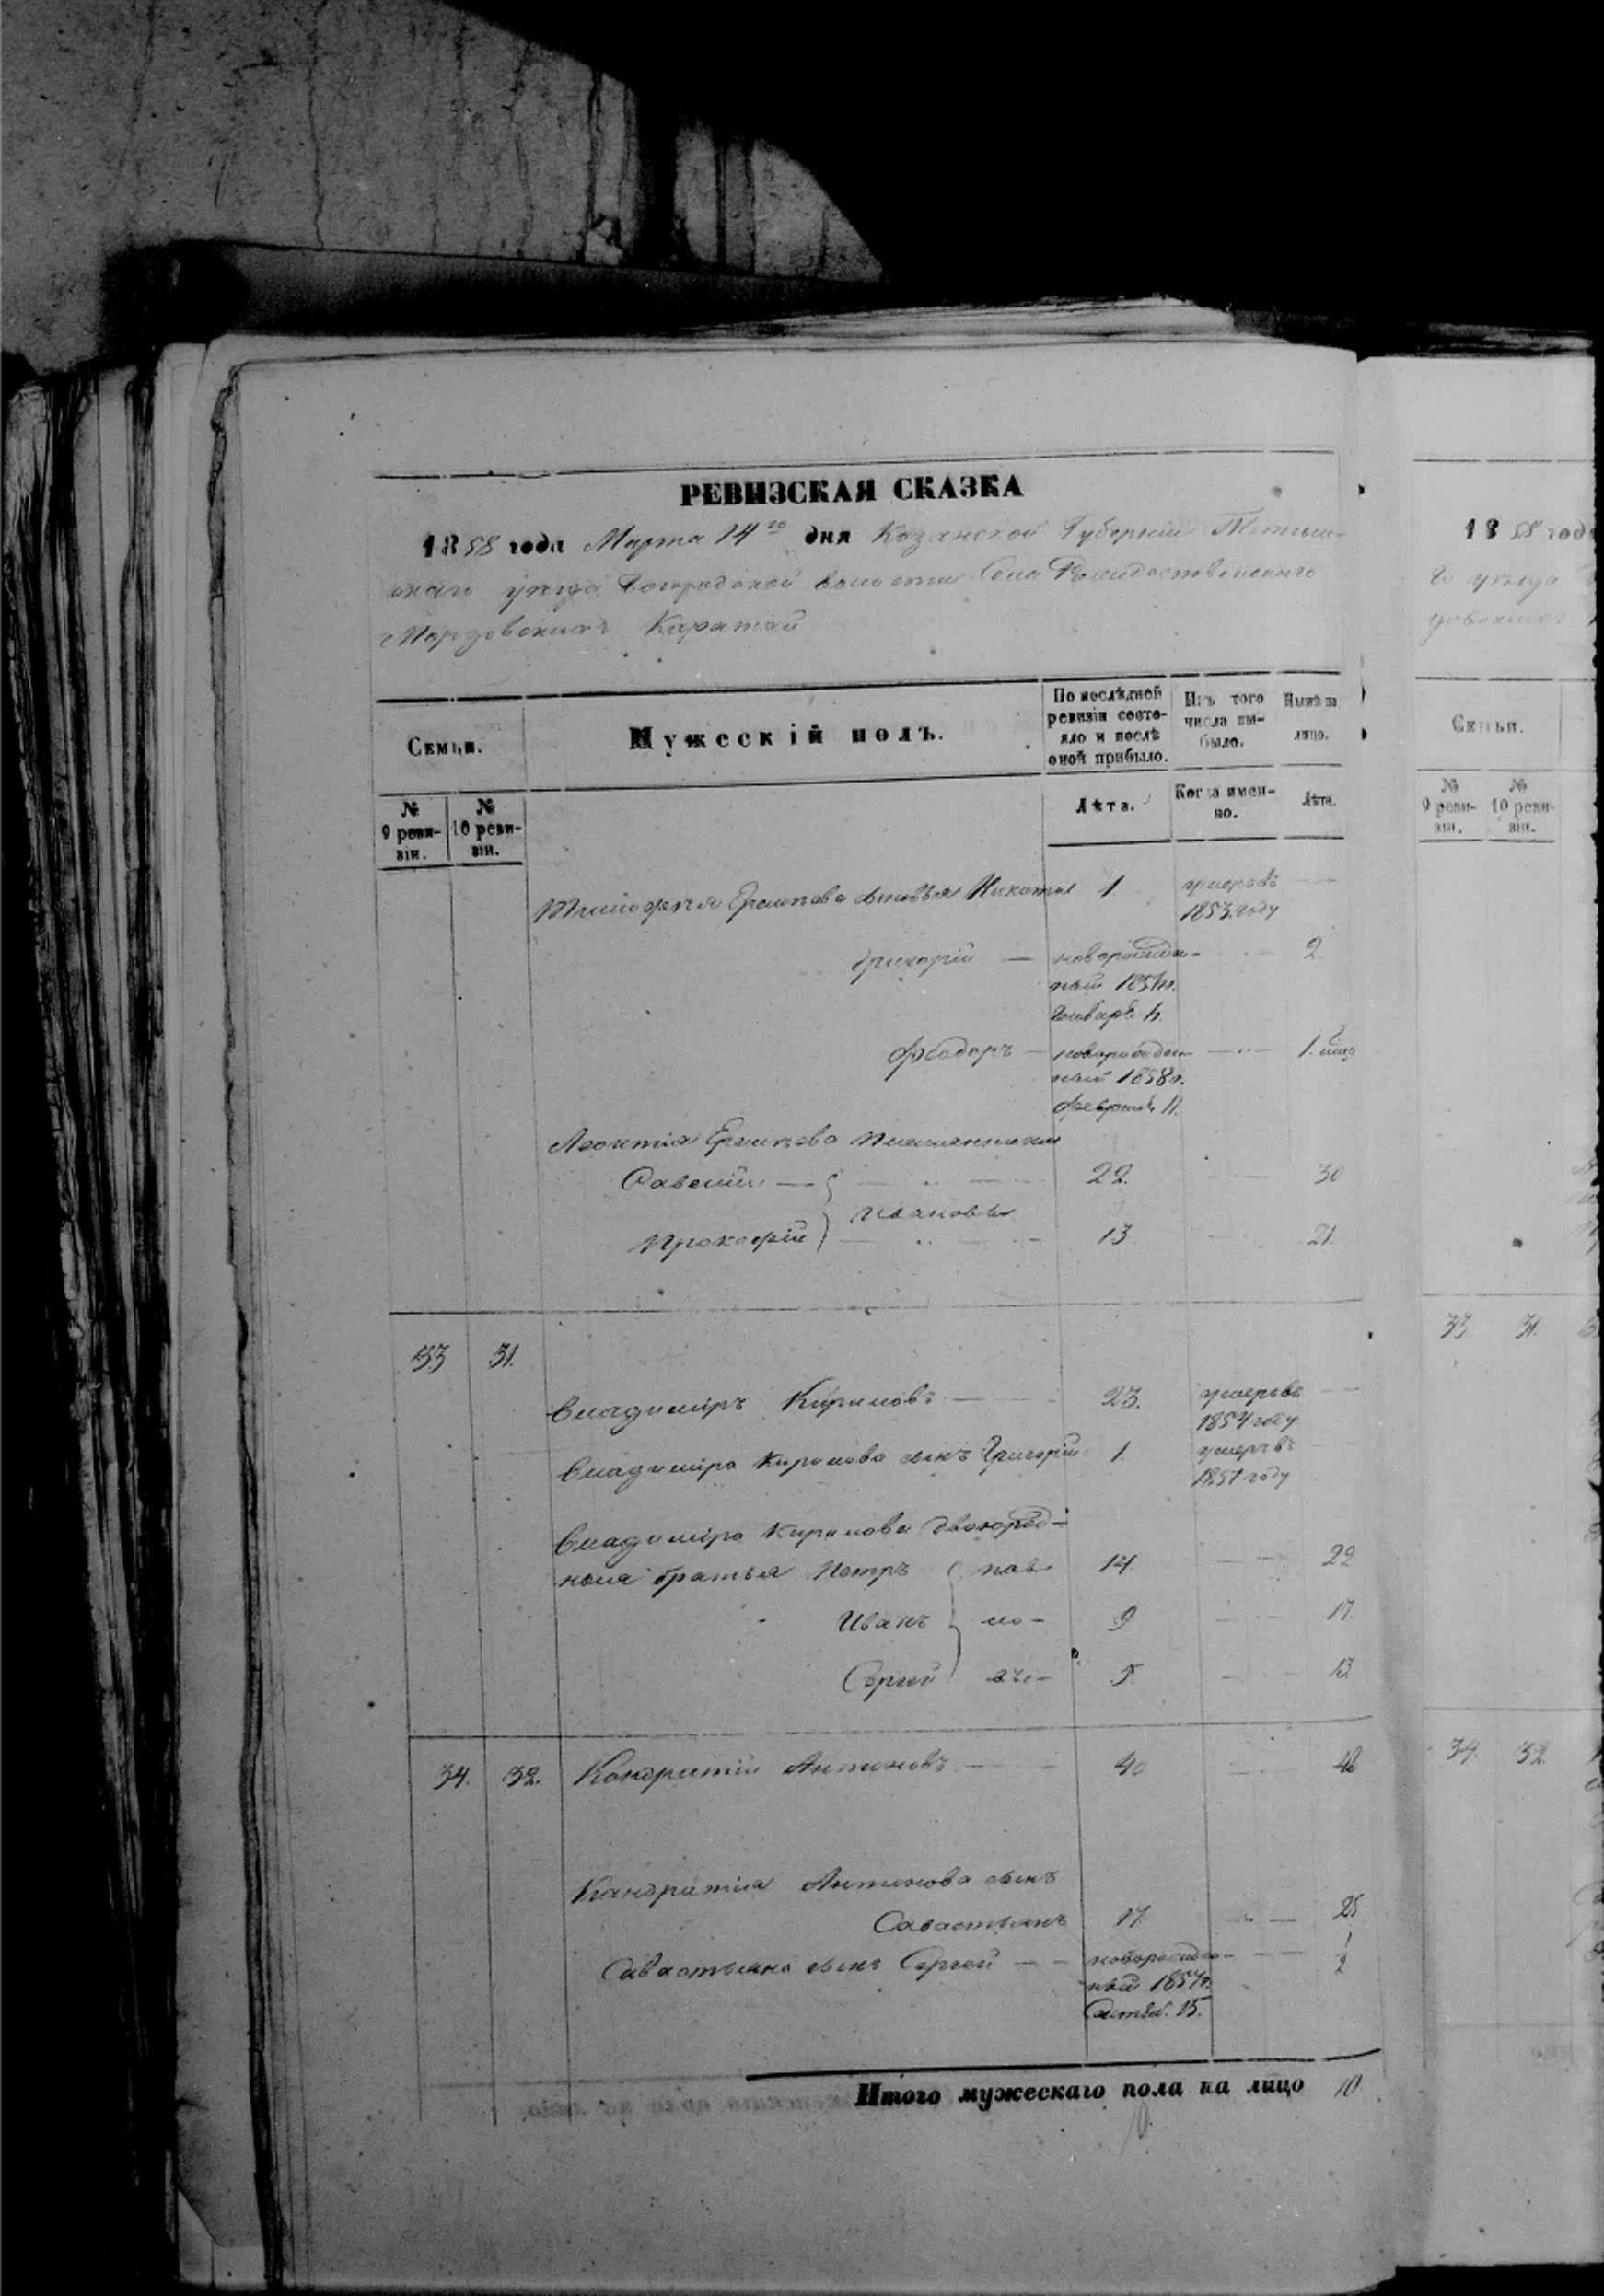 РЕВИЗСКАЯ СКАЗКА
1858 года Марта 14го дня Казанской Губернiи Тетюш-
скаго уезда Богородской волости Села Рождественскаго
Мордовских Каратай
Семьи.
Мужескiй полъ.
По послѣдней ревизiи состо-
яло и послѣ оной прибыло.
Изъ того числа вы-
было.
Нынѣ на лицо.
№ 9 реви-
зiи.
№ 10 реви-
зiи.
Лѣта.
Когда имен-
но.
Лѣта.
Тимофея сыновья Никита 1 умеръ въ
1853 году
Григорiй — новорожден- 2
ный
Января 4.
Феодоръ — новорожден- 1.
ный 1858 г.
Февраля 11.
Леонтiя племянники
Савелiй 22. 30
Ивановы
Прокофiй 13 21.
33 31.
Владимiръ Кириловъ 23. умеръ въ
1854 году
Владимiра Кирилова сынъ Григорiй 1. умеръ въ
1851 году
Владимiра Кирилова двоюрод-
ныя братья Петръ пав- 14. 22
Иванъ ло- 9 17.
Сергей вы- 5. 13.
34. 32. Кондратiй Антоновъ 40 48
Кандратiя Антонова сынъ
Савастьянъ 17. 25
Савастьяна сынъ Сергей — новорожден- 1/2
ный 1857 г.
15.
Итого мужескаго пола на лицо 10
1858 года
го уезда
Семьи.
№ 9 реви-
зiи.
№ 10 реви-
зiи.
33 31.
34. 32.